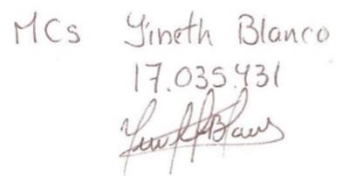 MCs Yineth Blanco
17.035.431